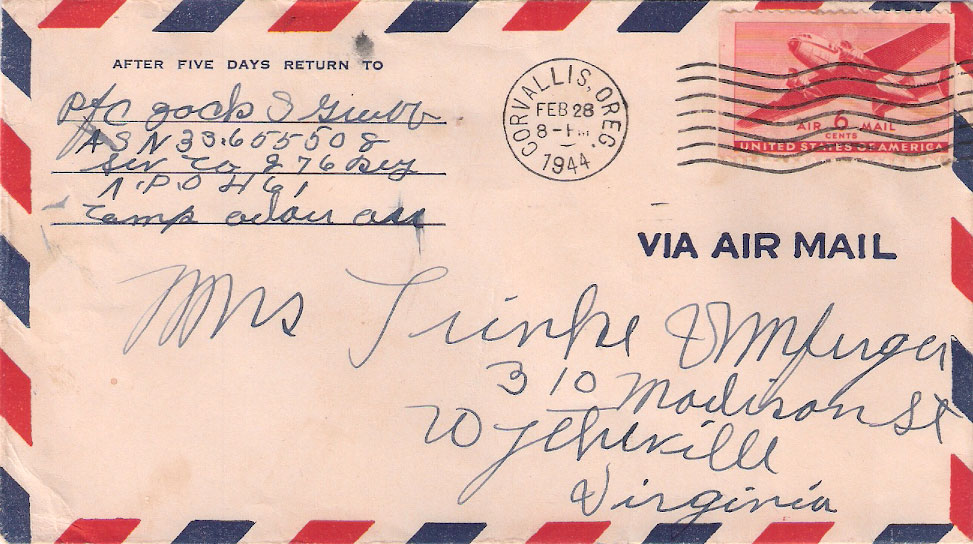 AFTER FIVE DAYS RETURN TO
Pfc Jack S Grubb
ASN 33.655508
Ser Co 276
A.P.O 461
Camp Adair
CORVALLIS, OREG.
FEB 28
1944
AIR 6 MAIL
CENTS
UNITED STATES OF AMERICA
VIA AIR MAIL
Mrs
310 Madison St
Wytheville
Virginia